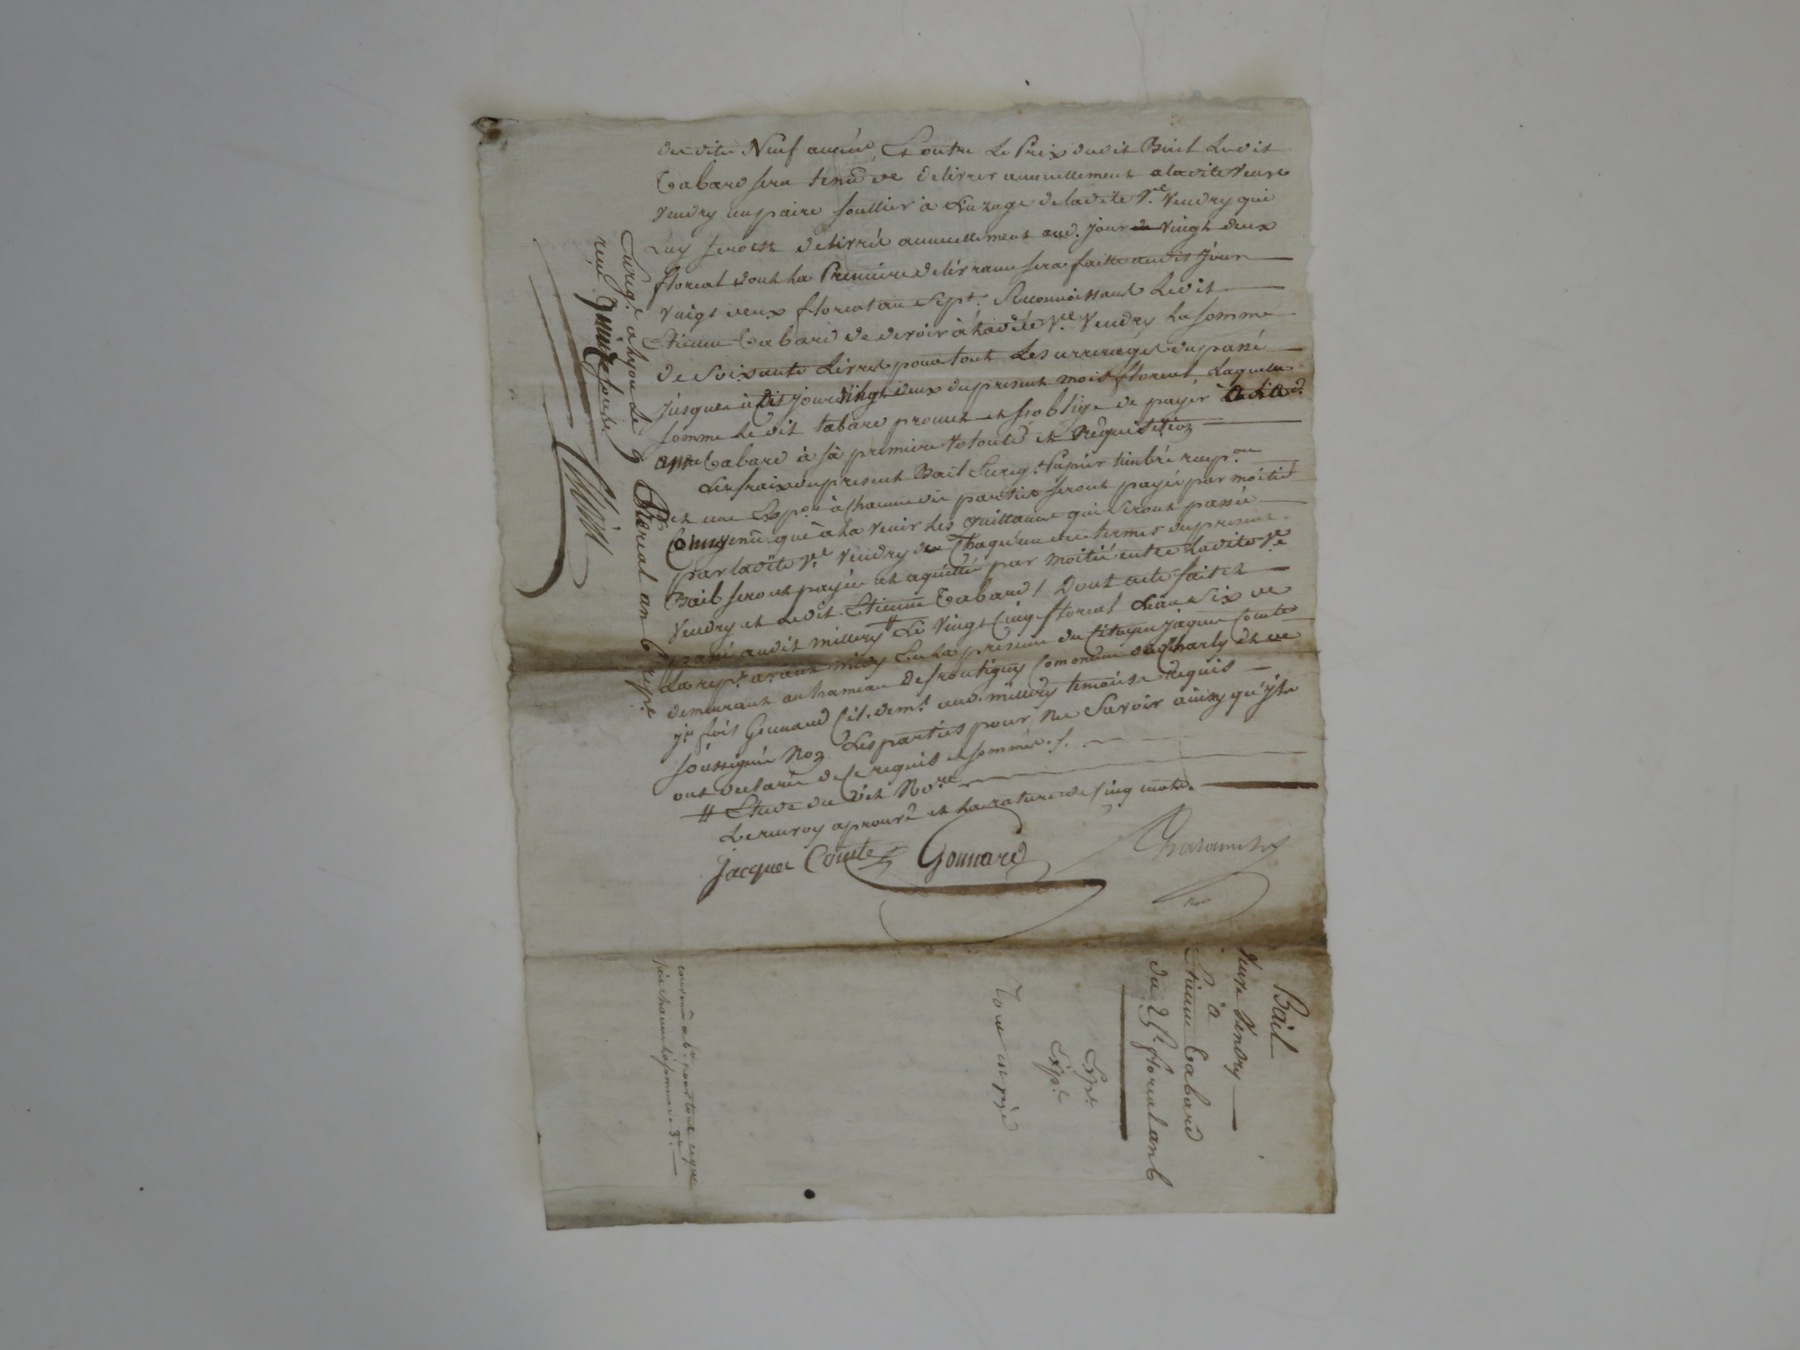 desdite Neuf année, Et outre Le Prix dudit Bail Ledit
Tabard sera tenu de delivrer annuellement aladite Veuve
Vendry un paire soullier à L'uzage deladite Ve. Vendry qui
Luy seront delivré annuellement aud. jour de vingt deux
floreal dont La Premiere delivrance sera faitte audit jour
vingt deux floreal an Sept. Reconnoissant Ledit
Etienne Tabard de devoir à Ladite Ve. Vendry La somme
de soixante Livres pour tout Les arrerages du passé
jusques à dit jour vingt deux du present mois floreal Laquelle
somme Ledit Tabard promet et s'oblige de payér
Tabard à sa premiere volonté et Requisition
Les fraix du present Bail Papier timbré
et une Expon. à chacune des parties seront payé par moitié
Convenu que à La venir Les quittance qui seront passée
par ladite Ve. Vendry de Chaqu'un des termes du present
Bail seront payée et aquittée par moitié entre Ladite Ve.
Vendry et Ledit Etienne Tabard / Dont acte fait et
passé audit millery # Le vingt cinq floreal L'an Six de
La rep. avant midy En La presence du Citoyen Jaque Comte
demeurant au hameau de frontigny Commune de Charly et de
Gonnard Cit. demt. aud. millery temoins Requis
soussignée Non Les parties pour Ne Savoir ainsy qu'ils
ont declaré de Ce requis et sommée./.
# Etude du dit Nore.
Le renvoy aprouvé et La rature de cinq mots.
Jacques Comte Gonnard
Enreg. a Lyon Le 9 Prereal an 6 rep.
reçu
Bail
Veuve Vendry
à
Etienne Tabard
du 25e. floreal an 6
Expe.
Expe.